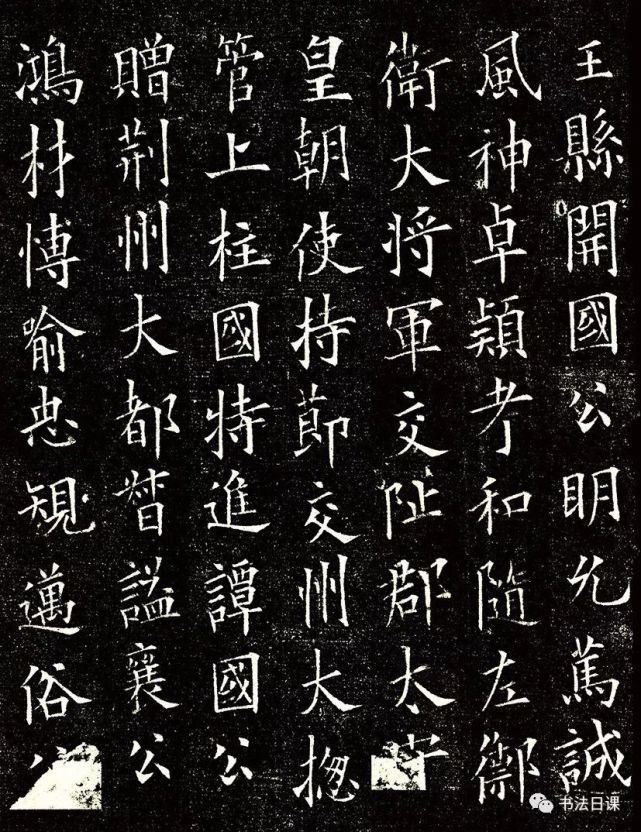 王縣開國公明允篤誠
風神卓穎考和隨左禦
衛大將軍交阯郡太守
皇朝使持節交州大摠
管上柱國特進譚國公
贈荊州大都督謚襄公
鴻材愽喻忠規邁俗公
书法日课